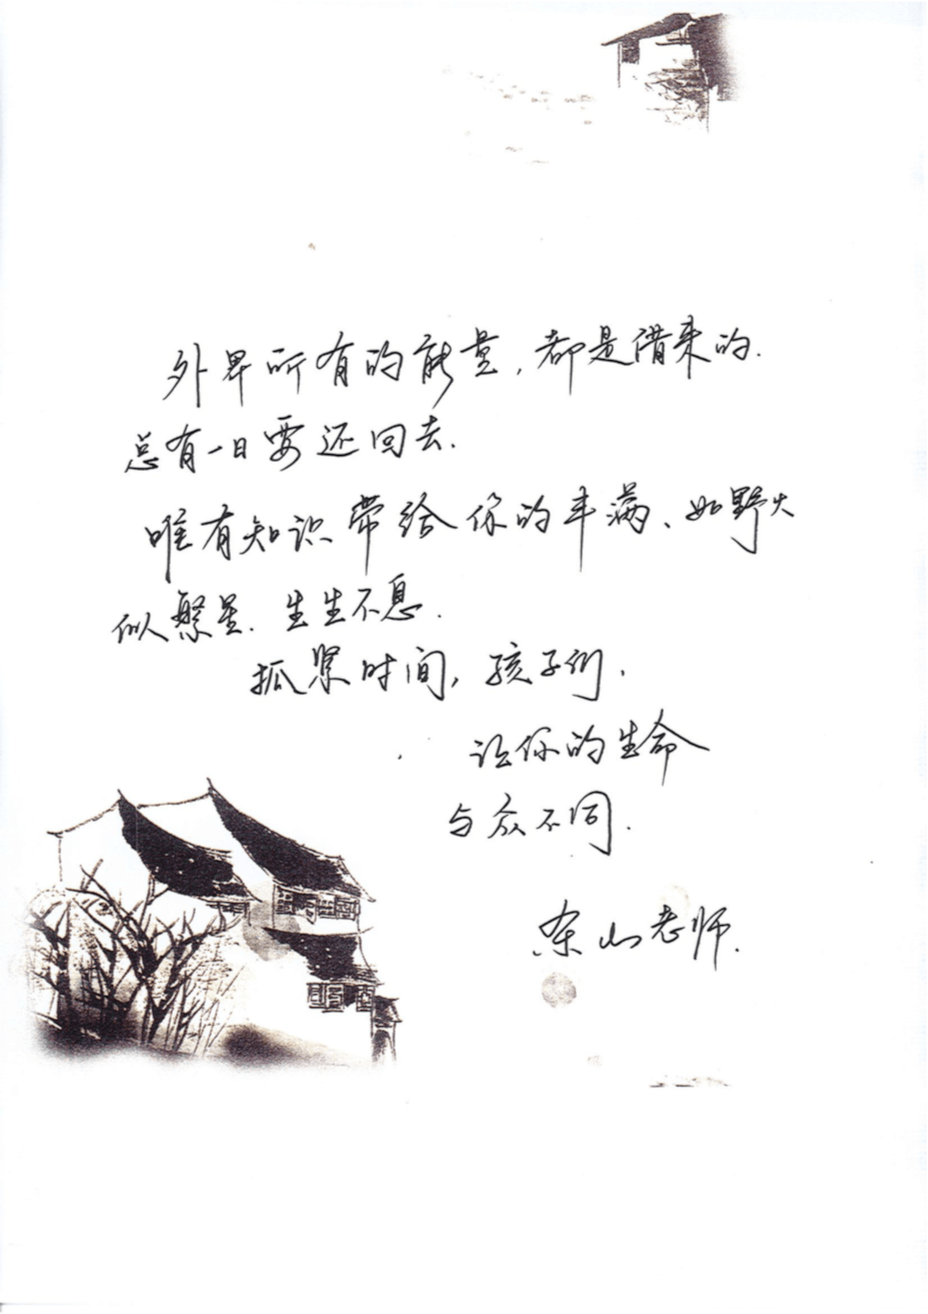 外界所有的能量，都是借来的.
总有一日要还回去.
唯有知识带给你的丰满、如野火
似繁星. 生生不息.
抓紧时间，孩子们.
让你的生命
与众不同.
山老师.